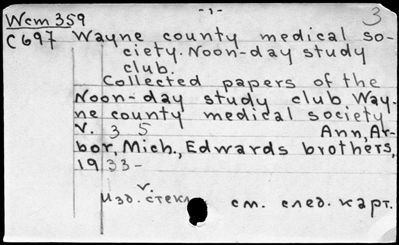 Wcm 359 -1- 3
C697 Wayne county medical so-
ciety. Noon-day study
club.
Collected papers of the
Noon-day study club, Way-
ne county medical society
V. 3 5 Ann, Ar-
bor, Mich., Edwards brothers,
1933-
v.
Изд. стекл см. след. карт.